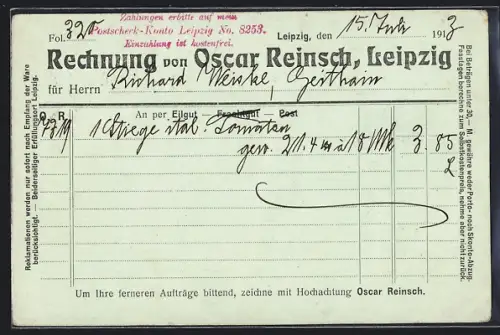 Zahlungen erbitte auf mein
Fol. 320 Postscheck-Konto Leipzig No. 8253.
Einzahlung ist kostenfrei.
Leipzig, den 15. Juli 1913
Rechnung von Oscar Reinsch, Leipzig
für Herrn Richard Weiske, Geithain
O. R. An per Eilgut Frachtgut Post
1 Stiege ital. Tomaten
gew. 21.4 à 18 Mk 3.85
2
Um Ihre ferneren Aufträge bittend, zeichne mit Hochachtung Oscar Reinsch.
Reklamationen werden nur sofort nach Empfang der Ware
berücksichtigt. — Beiderseitiger Erfüllungsort Leipzig.
Bei Beträgen unter 30,- M. gewähre weder Porto- noch Skonto-Abzug.
Fastagen berechne zum Selbstkostenpreis, nehme aber nicht zurück.